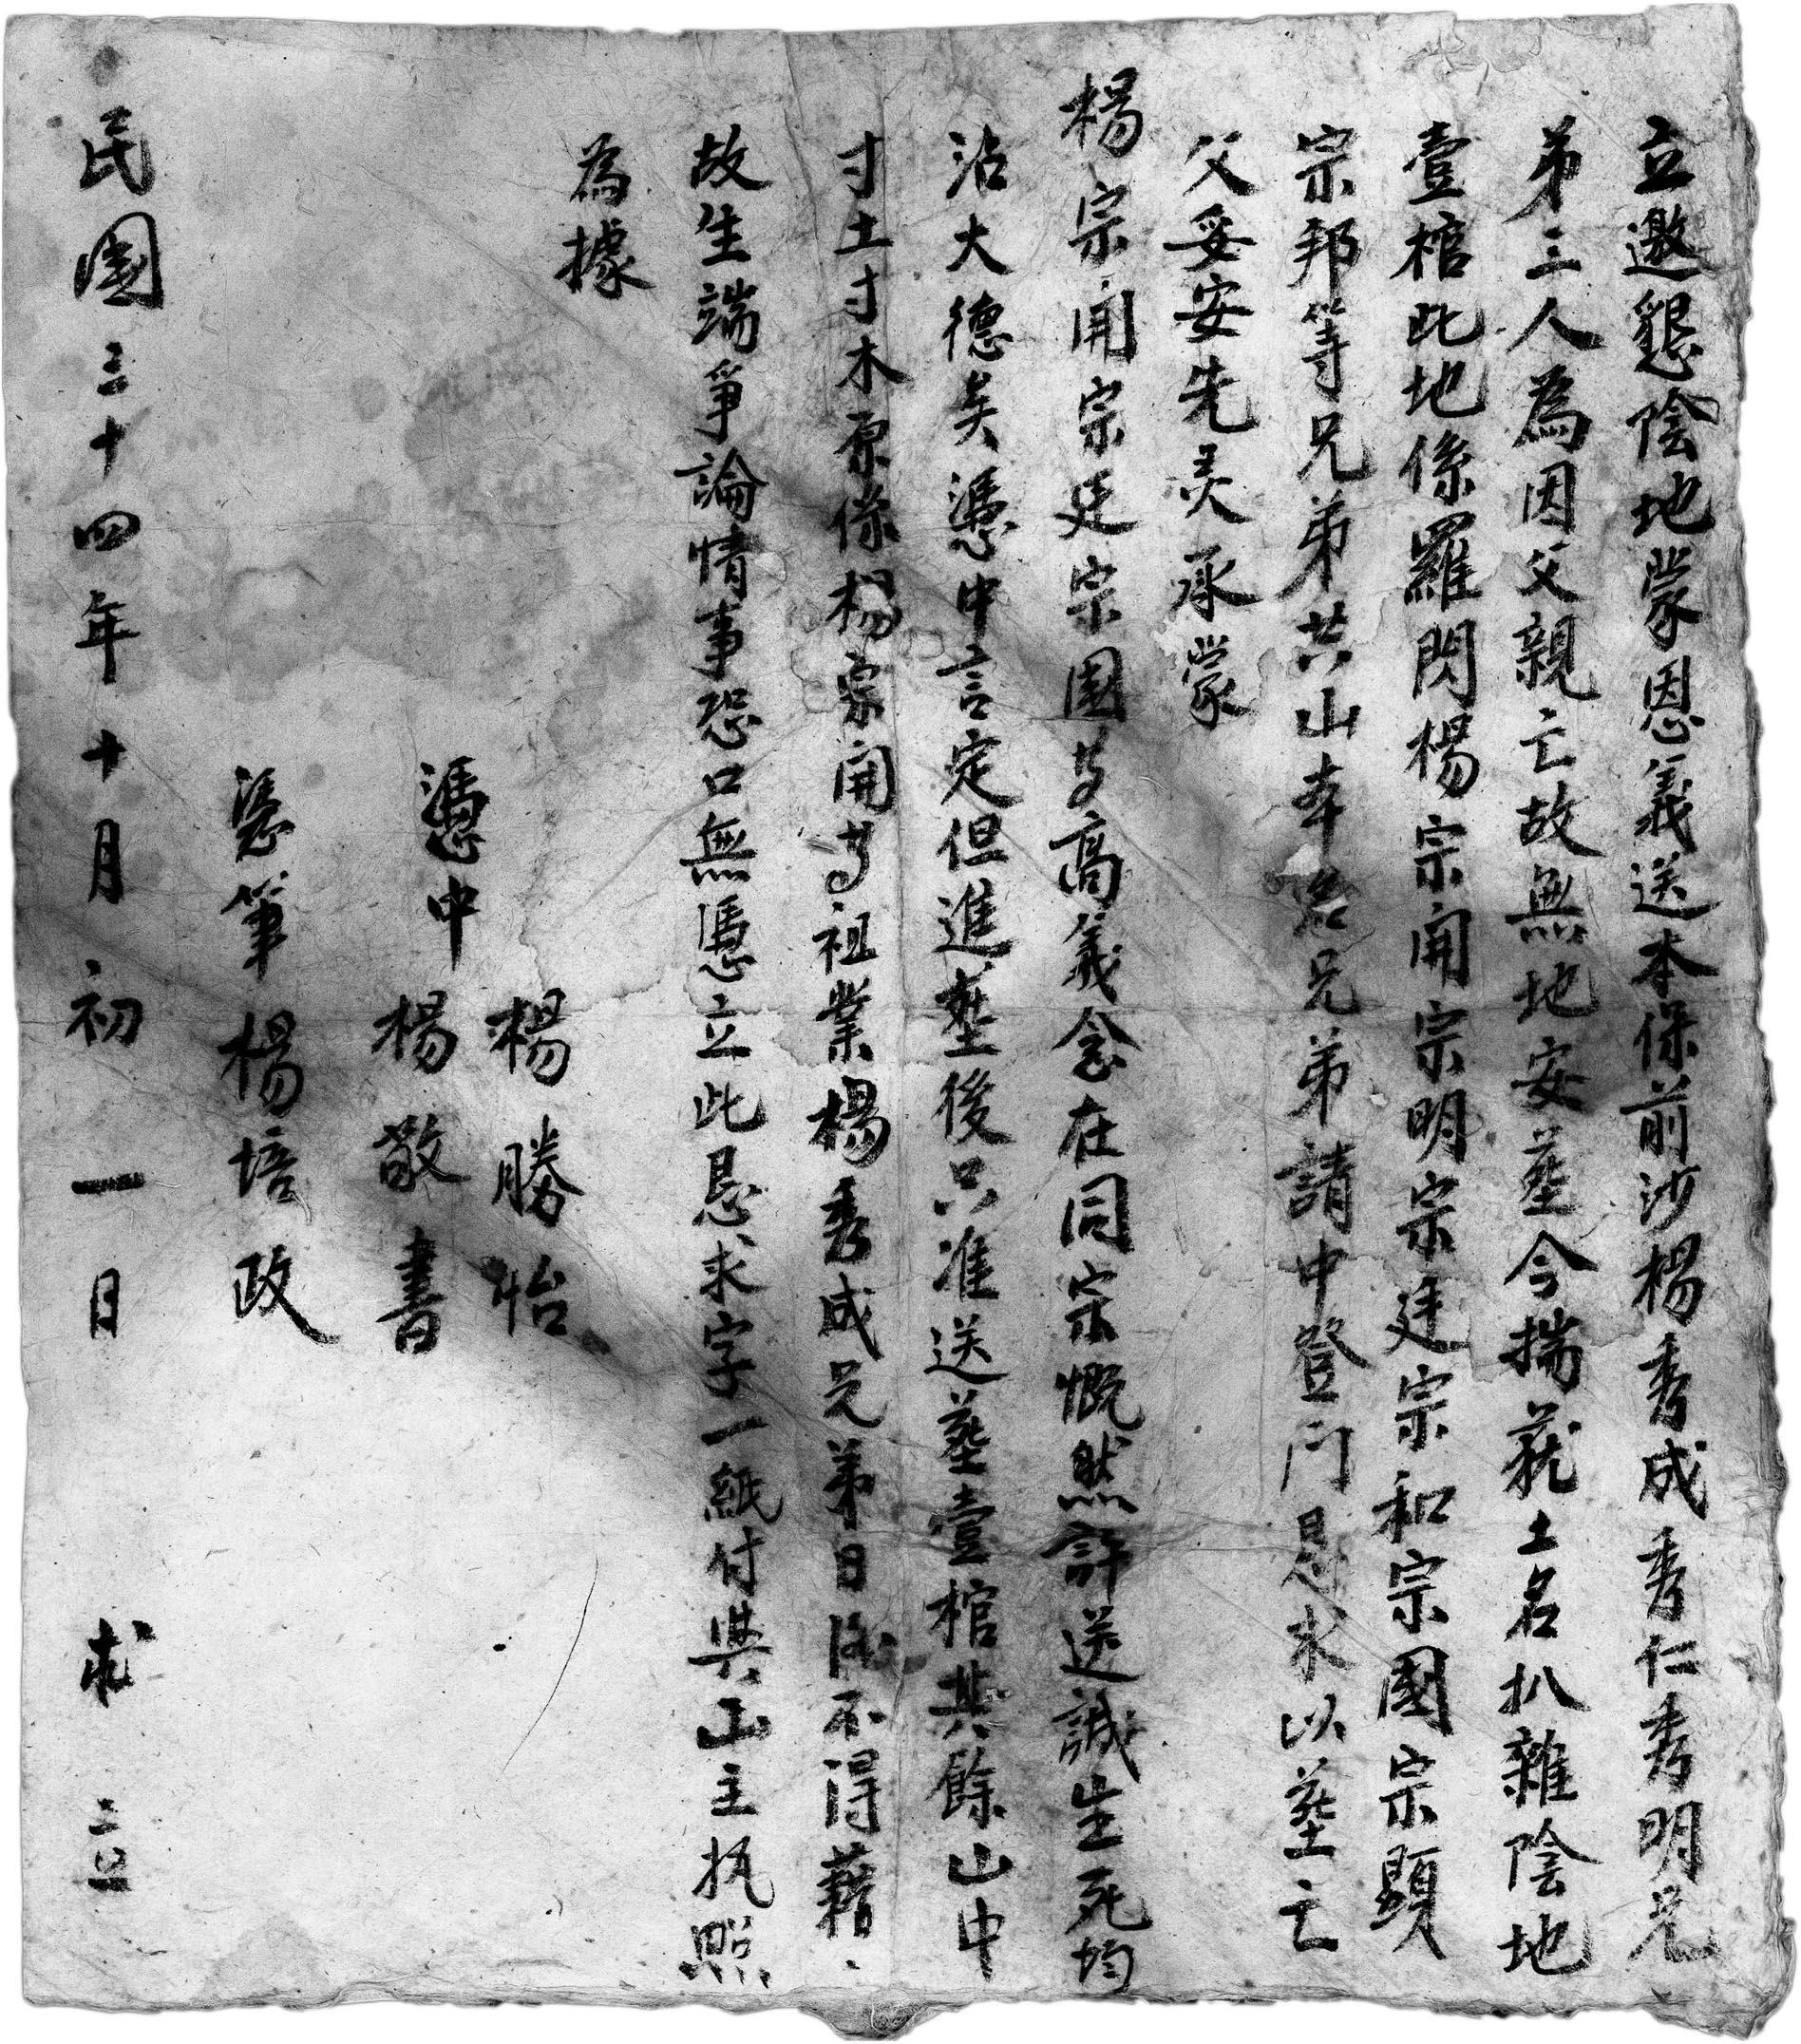 立邀懇陰地蒙恩義送本保前沙楊秀成秀仁秀明兄
弟三人為因父親亡故無地安塟今揣就土名扒雜陰地
壹棺此地係羅閃楊宗開宗明宗廷宗和宗國宗顯
宗邦等兄弟共山本名兄弟請中登门恳求以塟亡
父妥安先灵承蒙
楊宗開宗廷宗國等高義念在同宗慨然許送誠生死均
沾大德矣憑中言定但進塟後只准送塟壹棺其餘山中
寸土寸木原係楊宗開等祖業楊秀成兄弟日後不得藉
故生端爭論情事恐口無憑立此恳求字一紙付與山主执照
為據
楊勝怡
憑中 楊敬書
憑筆楊培政
民國三十四年十月初一日 求 立